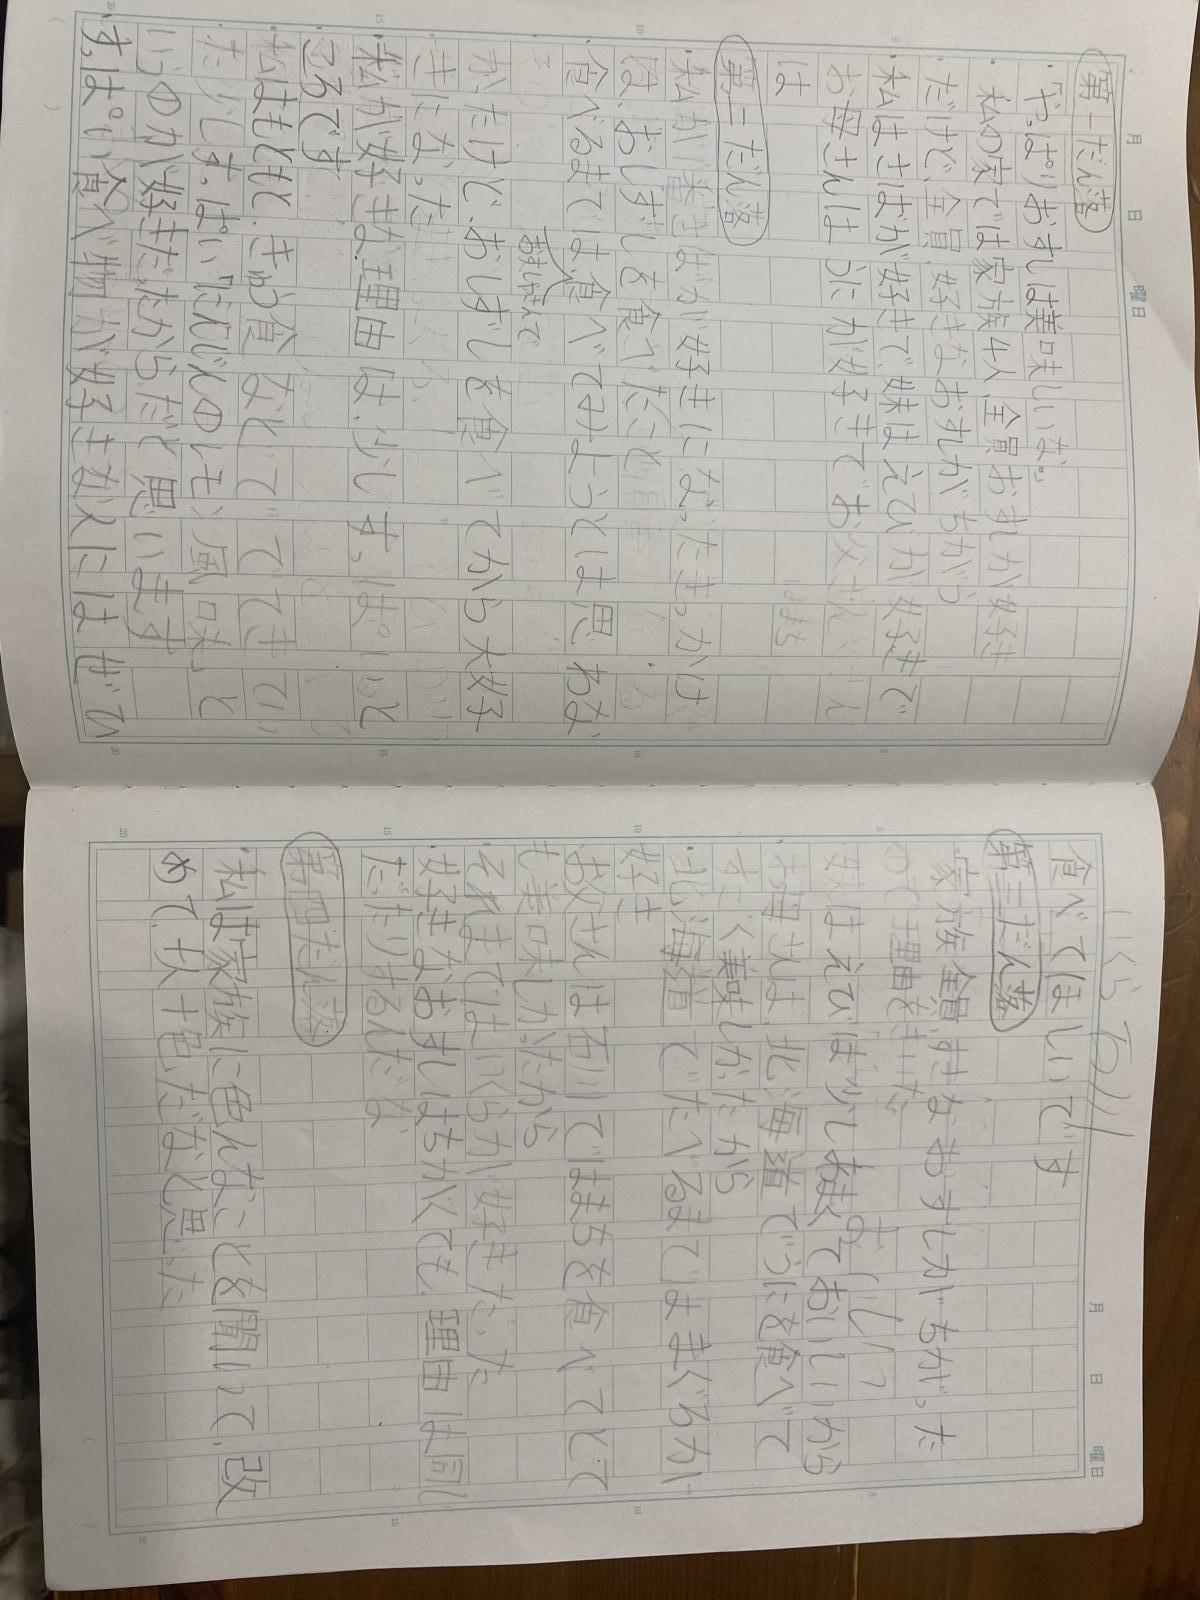 月 日 曜日
第一だん落
・「やっぱりおすしは美味しいな。
・私の家では家族4人全員おすしが好き
だけど、全員、好きなおすしがちがう
・私はさばが好きで妹はえびが好きで
お母さんはうにが好きでお父さん
は
第二だん落
・私がさばが好きになったきっかけ
は、おしずしを食べたこと
食べるまでは食べてみようとは思わな
かったけど、おしずしを食べてから大好
きになった
・私が好きな理由は、少しすっぱいと
ころです
・私はもともと、きゅう食などででてきてい
たりしすっぱい『だいこんのレモン風味』と
いうのが好きだったからだと思います
・すっぱい食べ物が好きな人にはぜひ
月 日 曜日
食べてほしいです
いくら
第三だん落
・家族全員、すきなおすしがちがった
ので理由をきいた
・妹はえびは少しあまくておいしいから
・お母さんは、北海道でうにを食べて
すごく美味しかったから
・北海道でたべるまではまぐろが
好き
・お父さんは石川ではまちを食べてとて
も美味しかったから
それまではいくらが好きだった
・好きなおすしはちがくても、理由は同じ
だったりするんだな
第四だん落
・私は家族に色んなことを聞いて、改
めて、十人十色だなと思った